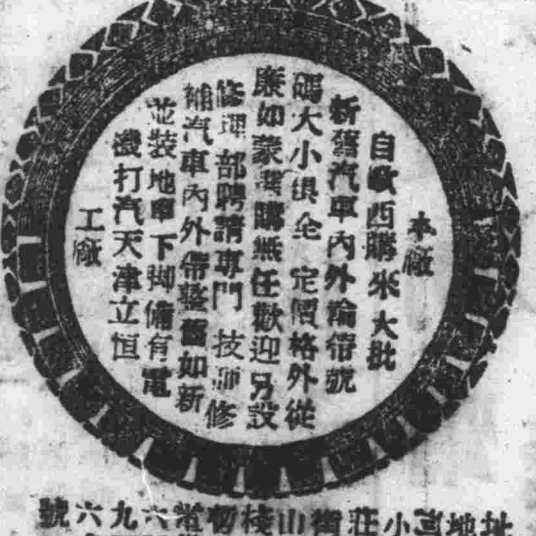 本廠
自歐西購來大批
新舊汽車內外輪帶號
碼大小俱全 定價格外從
廉如蒙惠購無任歡迎另設
修理部聘請專門 技師修
補汽車內外帶整舊如新
並裝地車下脚備有電
機打汽天津立恒
工廠
址地小莊街山棧
六九六號